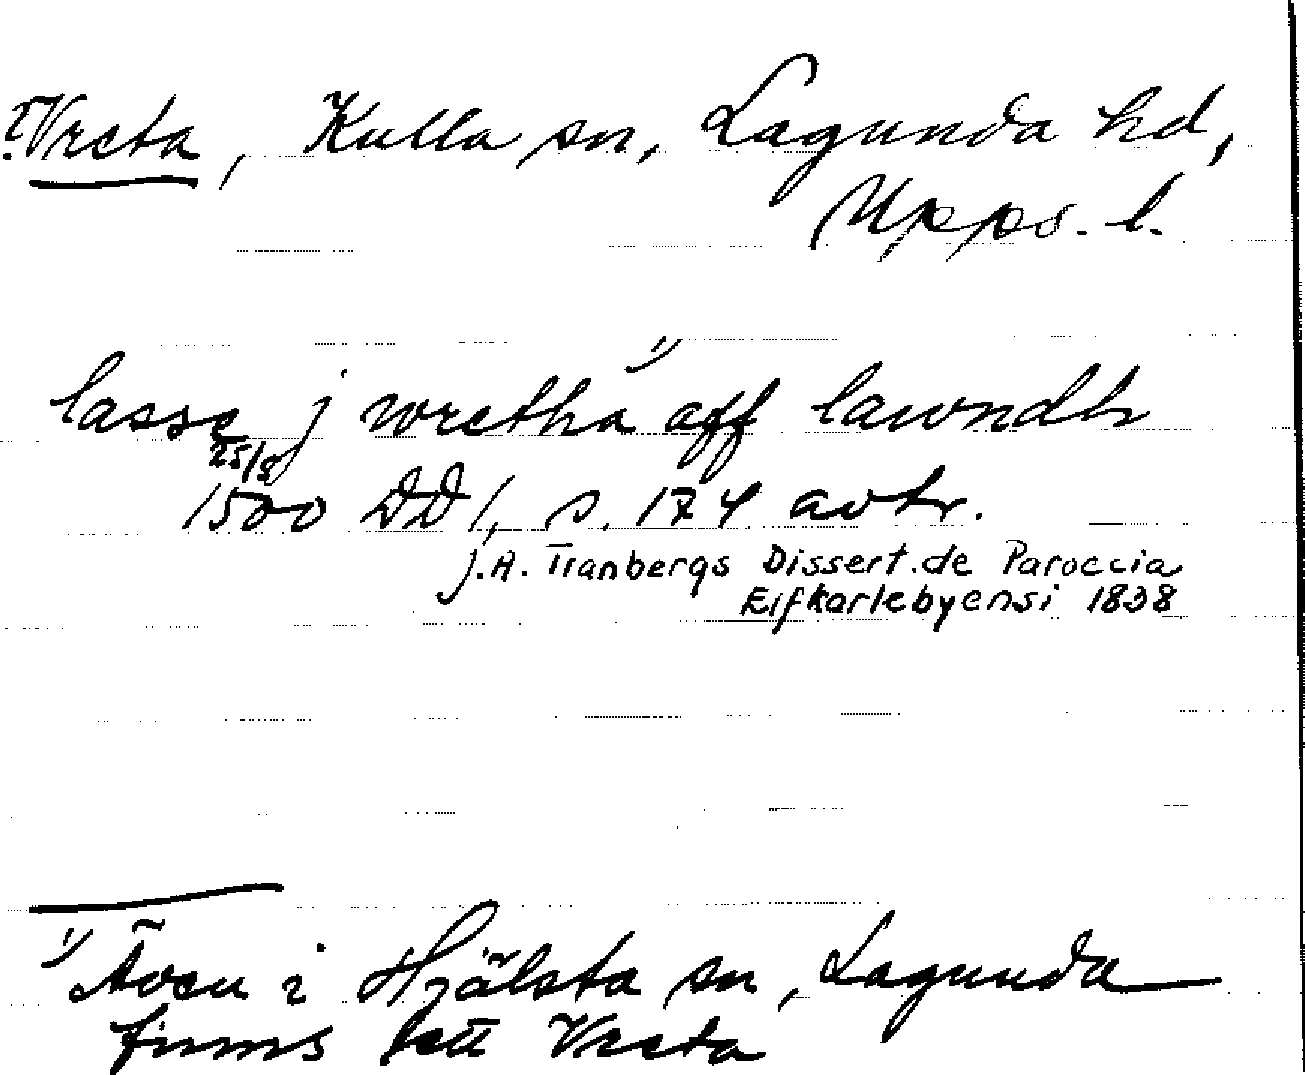 ?Vreta, Kulla sn, Lagunda hd,
Upps. l.
lasse j wretha 1) aff lawndh
25/8
1500 DD 1, s. 174 avtr.
J.A. Tranbergs Dissert. de Paroccia
Elfkarlebyensi 1838
1) Även i Hjälsta sn, Lagunda
finns ett Vreta